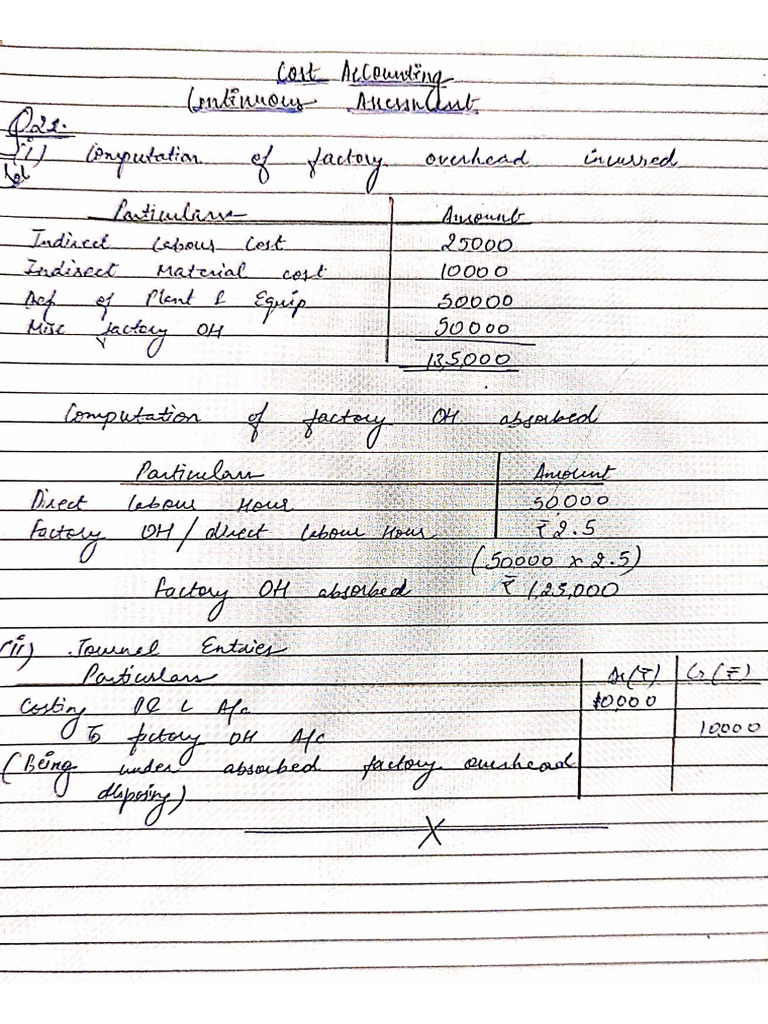 Cost Accounting
Continuous Assessment
Q22.
Sol
(i) Computation of factory overhead incurred
Particulars Amount
Indirect Labour Cost 25000
Indirect Material cost 10000
Dep of Plant & Equip 50000
Misc factory OH 50000
1,35,000
Computation of factory OH absorbed
Particulars Amount
Direct labour Hour 50,000
Factory OH / direct labour Hour ₹2.5
(50000 x 2.5)
Factory OH absorbed ₹ 1,25,000
(ii) Journal Entries
Particulars Dr(₹) Cr(₹)
Costing P& L A/c 10,000
To factory OH A/c 10,000
(Being under absorbed factory overhead
disposing)
X